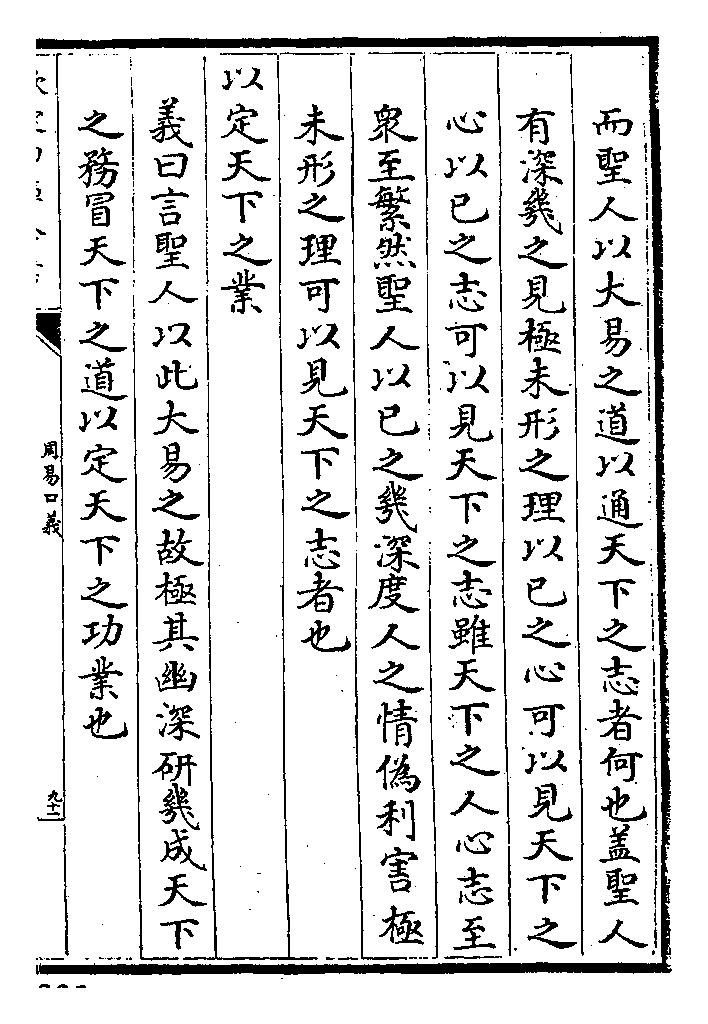 而聖人以大易之道以通天下之志者何也盖聖人
有深幾之見極未形之理以已之心可以見天下之
心以已之志可以見天下之志雖天下之人心志至
衆至繁然聖人以已之幾深度人之情偽利害極
未形之理可以見天下之志者也
以定天下之業
義曰言聖人以此大易之故極其幽深研幾成天下
之務冒天下之道以定天下之功業也
周易口義
九十二